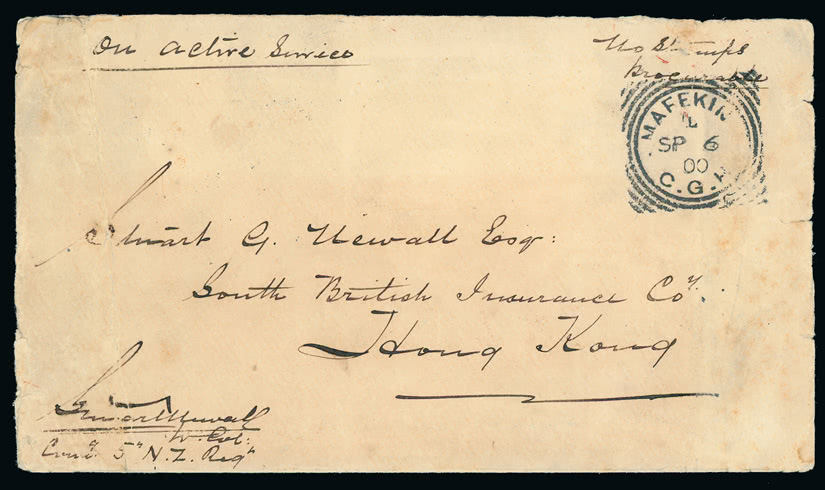 On Active Service
No Stamps
procurable
MAFEKIN
SP 6
00
C.G.H
Stuart G. Newall Esq:
South British Insurance Coy.
Hong Kong
Stuart Newall
Lt. Col:
Comdg 5th N.Z. Regt